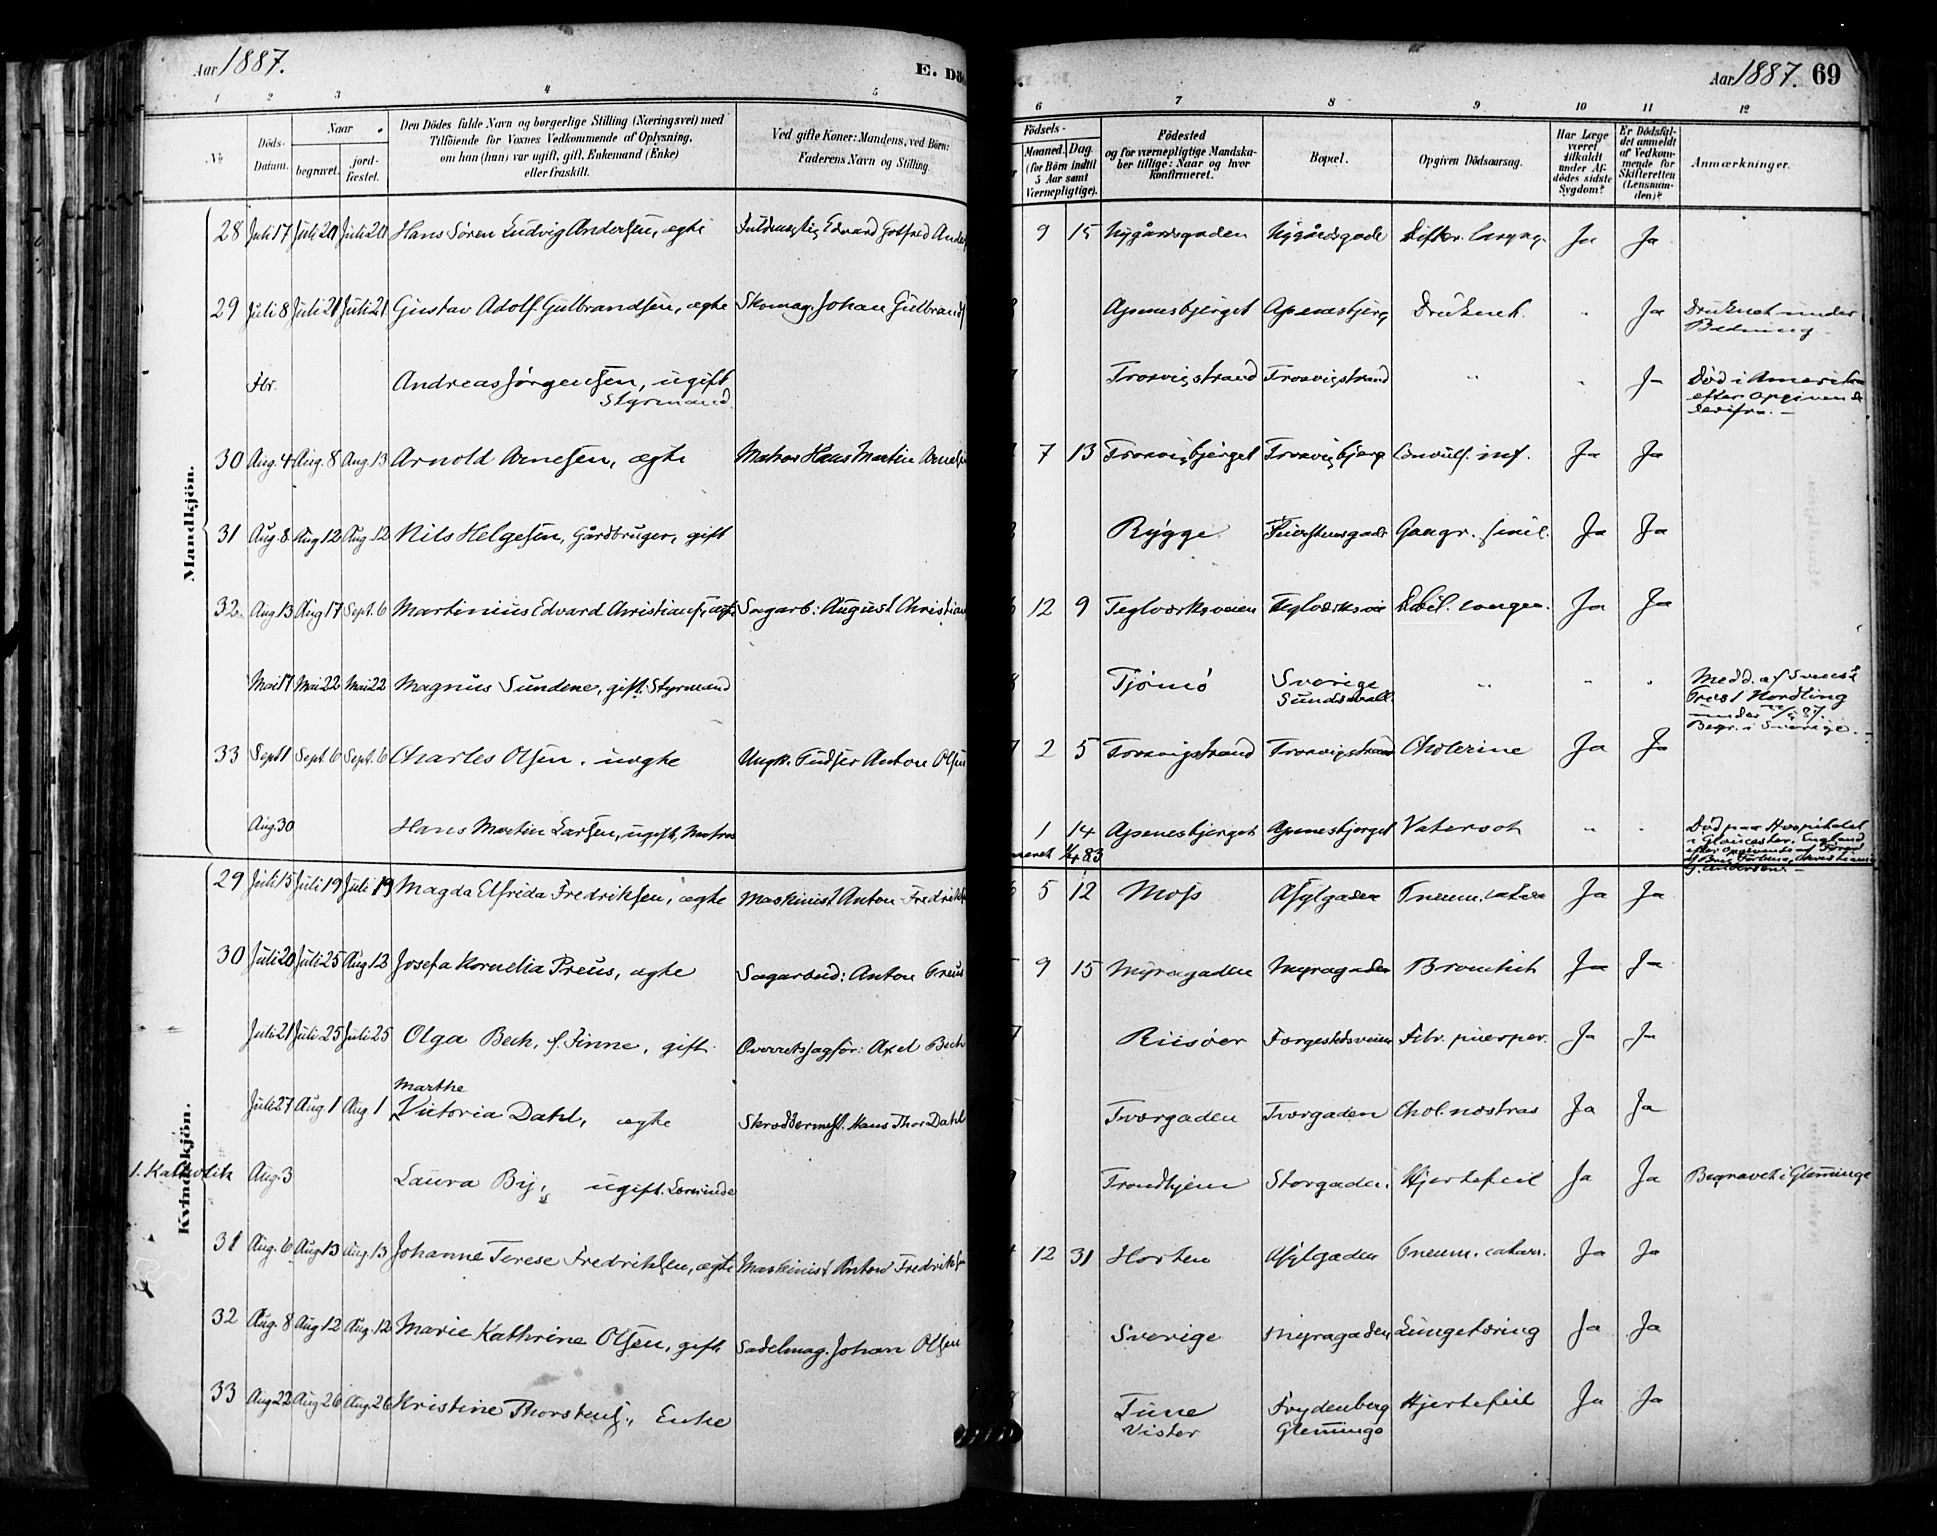 Aar 1887. E. Dö
Aar 1887. 69
1 2 3 4 5 6 7 8 9 10 11 12
No Döds-Datum. Naar begravet. jord-fæstet. Den Dödes fulde Navn og borgerlige Stilling (Næringsvei) med Tilföiende for Voxnes Vedkommende af Oplysning, om han (hun) var ugift, gift, Enkemand (Enke) eller fraskilt. Ved gifte Koner: Mandens, ved Börn: Faderens Navn og Stilling.
Födsels- Maaned. Dag. (for Börn indtil 5 Aar samt Værnepligtige). Födested og for værnepligtige Mandska-ber tillige: Naar og hvor Konfirmeret. Bopæl. Opgiven Dödsaarsag. Har Læge været tilkaldt under Af-dödes sidste Sygdom? Er Dödsfal-det anmeldt af Vedkom-mende for Skifteretten (Lensman-den)? Anmærkninger.
Mandkjön.
28 Juli 17 Juli 20 Juli 20 Hans Søren Ludvig Andersen, ægte Fuldmægtig Edvard Godfred Ander 9 15 Nygårdsgaden Nygårdsgade Difter. laryng. Ja Ja
29 Juli 8 Juli 21 Juli 21 Gustav Adolf Gulbrandsen, ægte Skomag. Johan Gulbrands Apenesbjerget Apenesbjerg Druknet. " Ja Druknet under Badning.
Fbr. Andreas Jørgensen, ugift Styrmand Trosvigstrand Trosvigstrand " " Ja Død i Amerika efter Opgivende derifra. —
30 Aug. 4 Aug. 8 Aug. 13 Arnold Arnesen, ægte Matros Hans Martin Arnesen 7 13 Trosvigbjerget Trosvigbjerg Convuls. inf. Ja Ja
31 Aug. 8 Aug 12 Aug. 12 Nils Helgesen, Gårdbruger, gift Rygge Gangr. senil. Ja Ja
32. Aug 13 Aug 17 Sept. 6 Martinius Edvard Christians, ægte Sagarb: August Christian 12 9 Teglværksveien Teglværksvei Debil. congen. Ja Ja
Mai 17 Mai 22 Mai 22 Magnus Sundene, gift. Styrmand Tjømø Sverige Sundsvall. " " " Medd. af Svensk Præst Nordling under 87. Begr. i Sverige. —
33 Sept 1 Sept. 6 Sept. 6 Charles Olsen. uægte Ungk. Anton Olsen 2 5 Trosvigstrand Trosvigstrand Cholerine Ja Ja
Aug. 30 Hans Martin Larsen, ugift, Matros 1 14 Apenesbjerget Apenesbjerget Vatersot " " Død paa Hospitalet i Gloucester, England
83
Kvindekjön.
29 Juli 15 Juli 19 Juli 19 Magda Elfrida Fredriksen, ægte Maskinist Anton Fredriks 5 12 Moss Asylgaden Pneum. catarr Ja Ja
30 Juli 20 Juli 25 Aug. 13 Josefa Kornelia Preus, ægte Sagarbeid: Anton Preus 9 15 Myragaden Myragaden Bronchit Ja Ja
Juli 21 Juli 25 Juli 25 Olga Bech, f. Finne, gift. Overretssagfør: Axel Bech Riisøer Færgestedsveien Febr. puerper. Ja Ja
Juli 27 Aug. 1 Aug 1 Marthe Victoria Dahl, ægte Skræddermest. Hans Thor Dahl Tværgaden Tværgaden Chol. nostras Ja Ja
1. Katholik Aug. 3 Laura By, ugift. Lærerinde Trondhjem Storgaden. Hjertefeil Ja Ja Begravet i Glemminge
31 Aug. 6 Aug 13 Aug. 13 Johanne Terese Fredriksen, ægte Maskinist Anton Fredriks 12 31 Horten Asylgaden Pneum. catarr. Ja Ja
32 Aug. 8 Aug 12 Aug. 12 Marie Kathrine Olsen, gift Sadelmag. Johan Olsen Sverige Myragaden Lungetæring Ja Ja
33 Aug 22 Aug 26 Aug. 26 Kristine Thorstens., Enke Tune Vister Frydenberg Glemminge Hjertefeil Ja Ja